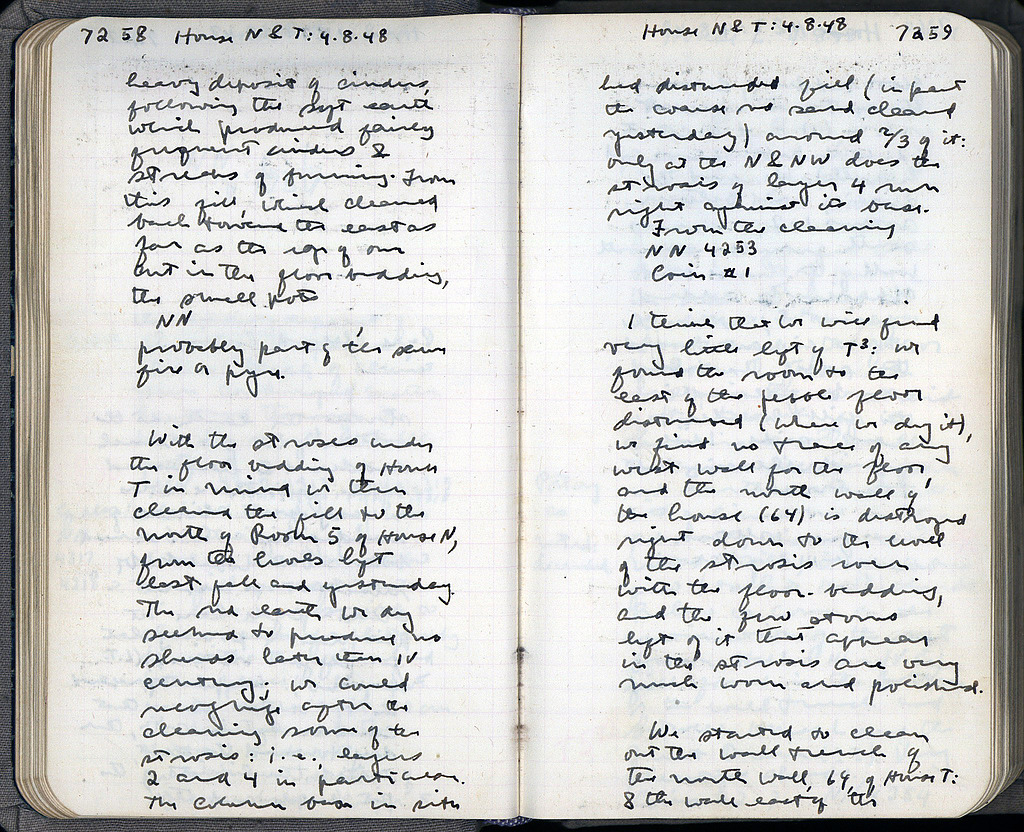 7258 House N & T: 4.8.48
heavy deposit of cinders,
following the soft earth
which produced fairly
frequent cinders &
streaks of burning. From
this fill, which cleaned
back toward the east as
far as the edge of our
cut in the floor bedding,
the small pot
NN
probably part of the same
fire or pyre.
With the stroses under
the floor bedding of House
T in mind we then
cleaned the fill to the
north of Room 5 of House N,
from the levels left
last fall and yesterday.
The red earth we dug
seemed to produce no
sherds later than IV
century; we could
recognize after the
cleaning some of the
strosis: i.e., layers
2 and 4 in particular.
The column base in situ
House N & T: 4.8.48 7259
had disturbed fill (in part
the coarse red sand cleaned
yesterday) around 2/3 of it:
only at the N & NW does the
strosis of layer 4 run
right against its base.
From the cleaning
NN 4253
Coin #1
I think that we will find
very little left of T³: we
found the room to the
east of the pebble floor
disturbed (when we dug it),
we find no trace of any
west wall for the floor,
and the north wall of
the house (64) is destroyed
right down to the level
of the strosis even
with the floor-bedding,
and the few stones
left of it that appear
in the strosis are very
much worn and polished.
We started to clean
out the wall trench of
the north wall, 64, of House T:
& the wall east of the